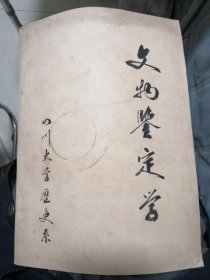 文物鉴定学
四川大学历史系